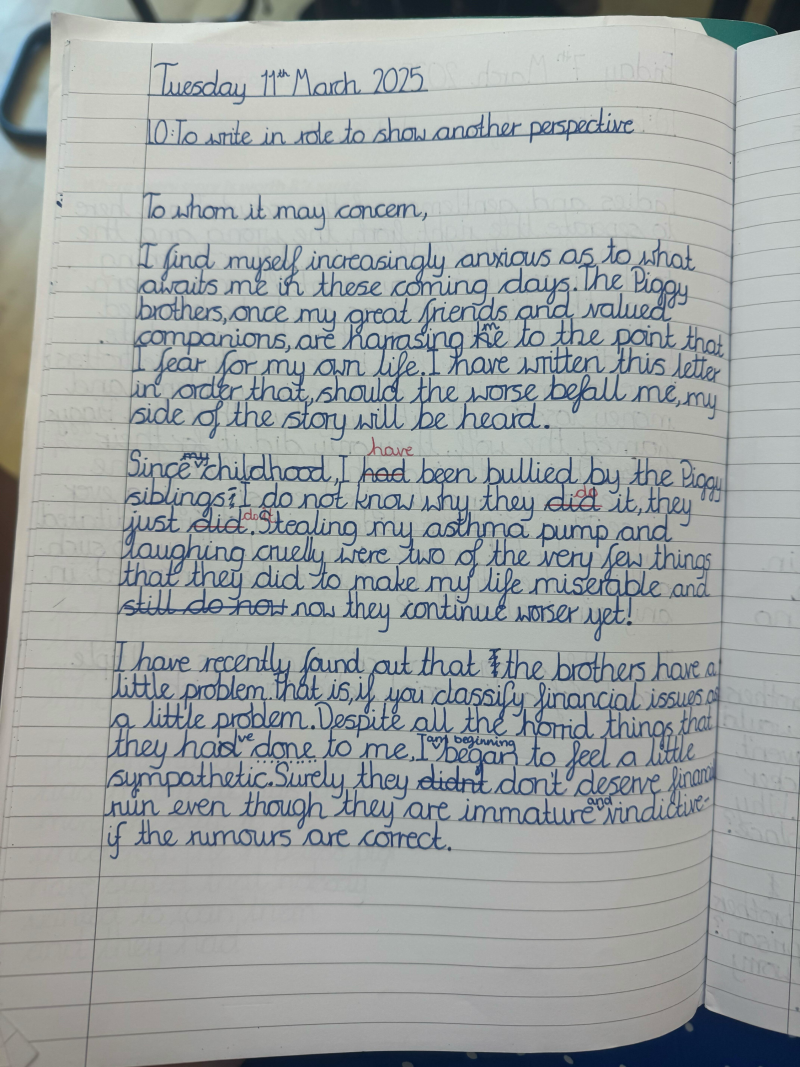 Tuesday 11th March 2025
LO: To write in role to show another perspective
To whom it may concern,
I find myself increasingly anxious as to what
awaits me in these coming days. The Piggy
brothers, once my great friends and valued
companions, are harrasing me to the point that
I fear for my own life. I have written this letter
in order that, should the worse befall me, my
side of the story will be heard.
Since my childhood, I had have been bullied by the Piggy
siblings; I do not know why they did do it, they
just did do. Stealing my asthma pump and
laughing cruelly were two of the very few things
that they did to make my life miserable and
still do now now they continue worser yet!
I have recently found out that the brothers have a
little problem. that is, if you classify financial issues as
a little problem. Despite all the horrid things that
they have done to me, I am beginning to feel a little
sympathetic. Surely they didn't don't deserve financial
ruin even though they are immature and vindictive-
if the rumours are correct.